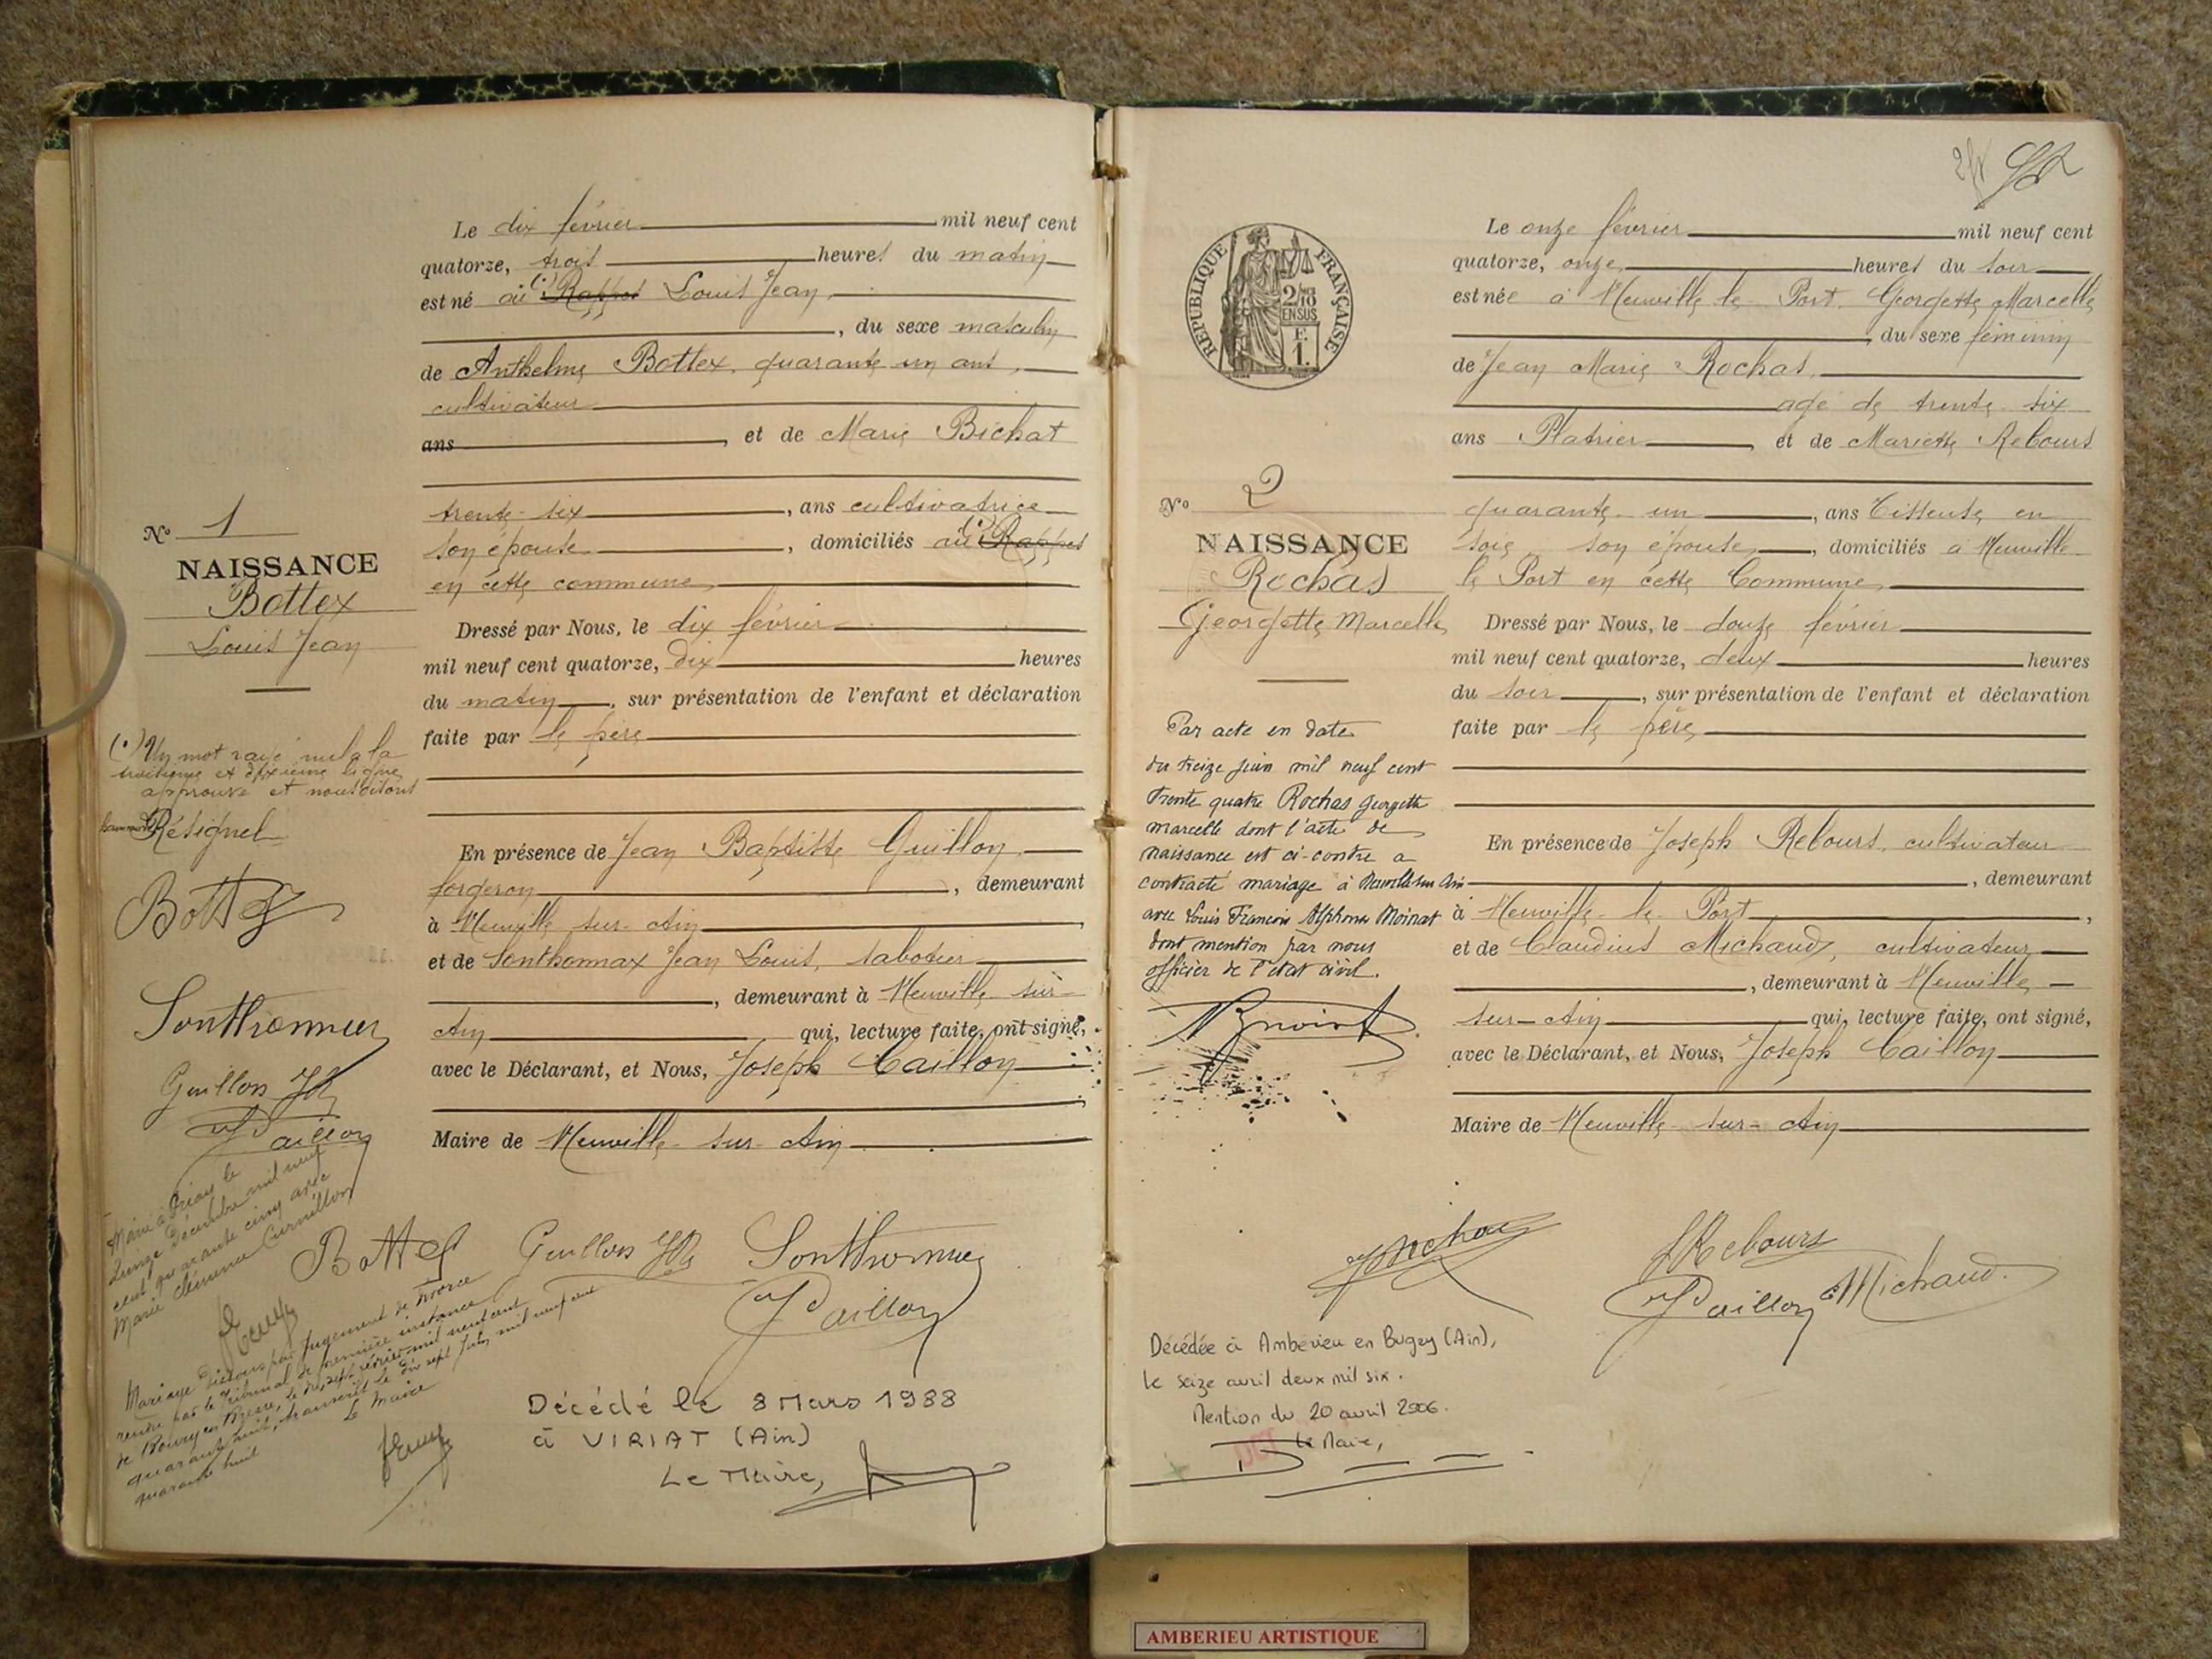 Le dix février mil neuf cent
quatorze, trois heures du matin
est né au (.) Rappet Louis Jean,
, du sexe masculin
de Anthelme Bottex, quarante un ans,
cultivateur
ans , et de Marie Bichat
trente-six , ans cultivatrice
son épouse , domiciliés au (.) Rappet
en cette commune
Dressé par Nous, le dix février
mil neuf cent quatorze, dix heures
du matin , sur présentation de l'enfant et déclaration
faite par le père
En présence de Jean Baptiste Guillon,
forgeron , demeurant
à Neuville-sur-Ain ,
et de Sonthonnax Jean Louis, sabotier
, demeurant à Neuville-sur-
Ain qui, lecture faite, ont signé,
avec le Déclarant, et Nous, Joseph Caillon
Maire de Neuville-sur-Ain
No 1
NAISSANCE
Bottex
Louis Jean
(.) Un mot rayé nul à la
troisième et dixième ligne
approuvé et nous disons
Résignel
Bottex
Sonthonnax
Guillon JB
J Caillon
Marié à Priay le
quinze Décembre mil neuf
cent quarante cinq avec
Marie Clémence Curnillon
Mariage dissous par jugement de divorce
rendu par le Tribunal de première instance
de Bourg en Bresse, le dix sept février mil neuf cent
quarante huit, transcrit le dix sept Juin mil neuf cent
quarante huit
Le Maire
Bottex Guillon JB Sonthonnax
J Caillon
Décédé le 8 Mars 1988
à VIRIAT (Ain)
Le Maire,
RÉPUBLIQUE FRANÇAISE
2/10
EN SUS
1.
Le onze février mil neuf cent
quatorze, onze heures du soir
est née à Neuville-le-Port, Georgette Marcelle
, du sexe féminin
de Jean Marie Rochas,
agé de trente-six
ans Platrier , et de Mariette Rebours
quarante-un , ans Tisseuse en
soie son épouse , domiciliés à Neuville-
le Port en cette Commune
Dressé par Nous, le douze février
mil neuf cent quatorze, deux heures
du soir , sur présentation de l'enfant et déclaration
faite par le père
En présence de Joseph Rebours, cultivateur
, demeurant
à Neuville-le-Port ,
et de Claudius Michaud, cultivateur
, demeurant à Neuville-
sur-Ain qui, lecture faite, ont signé,
avec le Déclarant, et Nous, Joseph Caillon
Maire de Neuville-sur-Ain
No 2
NAISSANCE
Rochas
Georgette Marcelle
Par acte en date
du treize juin mil neuf cent
trente quatre Rochas Georgette
marcelle dont l'acte de
naissance est ci-contre a
contracté mariage à Neuville sur Ain
avec Louis François Alphonse Moinat
dont mention par nous
officier de l'état civil.
JRebours
J Caillon Michaud
Décédée à Ambérieu en Bugey (Ain),
le seize avril deux mil six.
Mention du 20 avril 2006.
Le Maire,
AMBERIEU ARTISTIQUE